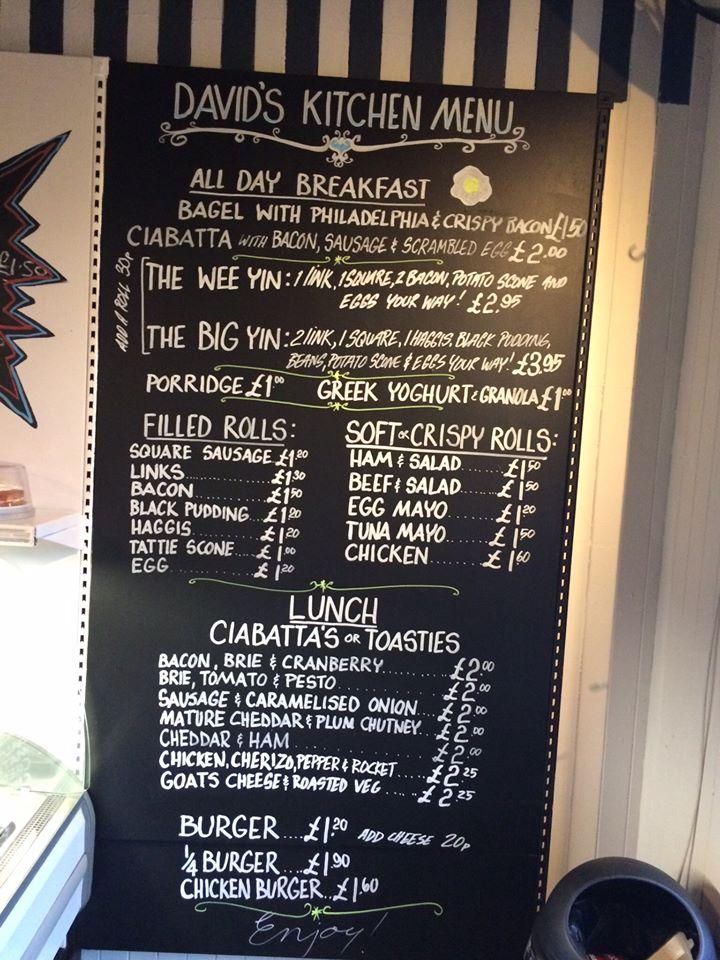 DAVID'S KITCHEN MENU
ALL DAY BREAKFAST
BAGEL WITH PHILADELPHIA & CRISPY BACON £1.50
CIABATTA WITH BACON, SAUSAGE & SCRAMBLED EGG £2.00
ADD A ROLL 30p
THE WEE YIN: 1 LINK, 1 SQUARE, 2 BACON, POTATO SCONE AND
EGGS YOUR WAY! £2.95
THE BIG YIN: 2 LINK, 1 SQUARE, 1 HAGGIS, BLACK PUDDING,
BEANS, POTATO SCONE & EGGS YOUR WAY! £3.95
PORRIDGE £1.00 GREEK YOGHURT & GRANOLA £1.00
FILLED ROLLS:
SQUARE SAUSAGE £1.20
LINKS £1.30
BACON £1.50
BLACK PUDDING £1.20
HAGGIS £1.20
TATTIE SCONE £1.00
EGG £1.20
SOFT or CRISPY ROLLS:
HAM & SALAD £1.50
BEEF & SALAD £1.50
EGG MAYO £1.20
TUNA MAYO £1.50
CHICKEN £1.60
LUNCH
CIABATTA'S OR TOASTIES
BACON, BRIE & CRANBERRY £2.00
BRIE, TOMATO & PESTO £2.00
SAUSAGE & CARAMELISED ONION £2.00
MATURE CHEDDAR & PLUM CHUTNEY £2.00
CHEDDAR & HAM £2.00
CHICKEN, CHERIZO, PEPPER & ROCKET £2.25
GOATS CHEESE & ROASTED VEG £2.25
BURGER £1.20 ADD CHEESE 20p
1/4 BURGER £1.90
CHICKEN BURGER £1.60
Enjoy!
£1.50